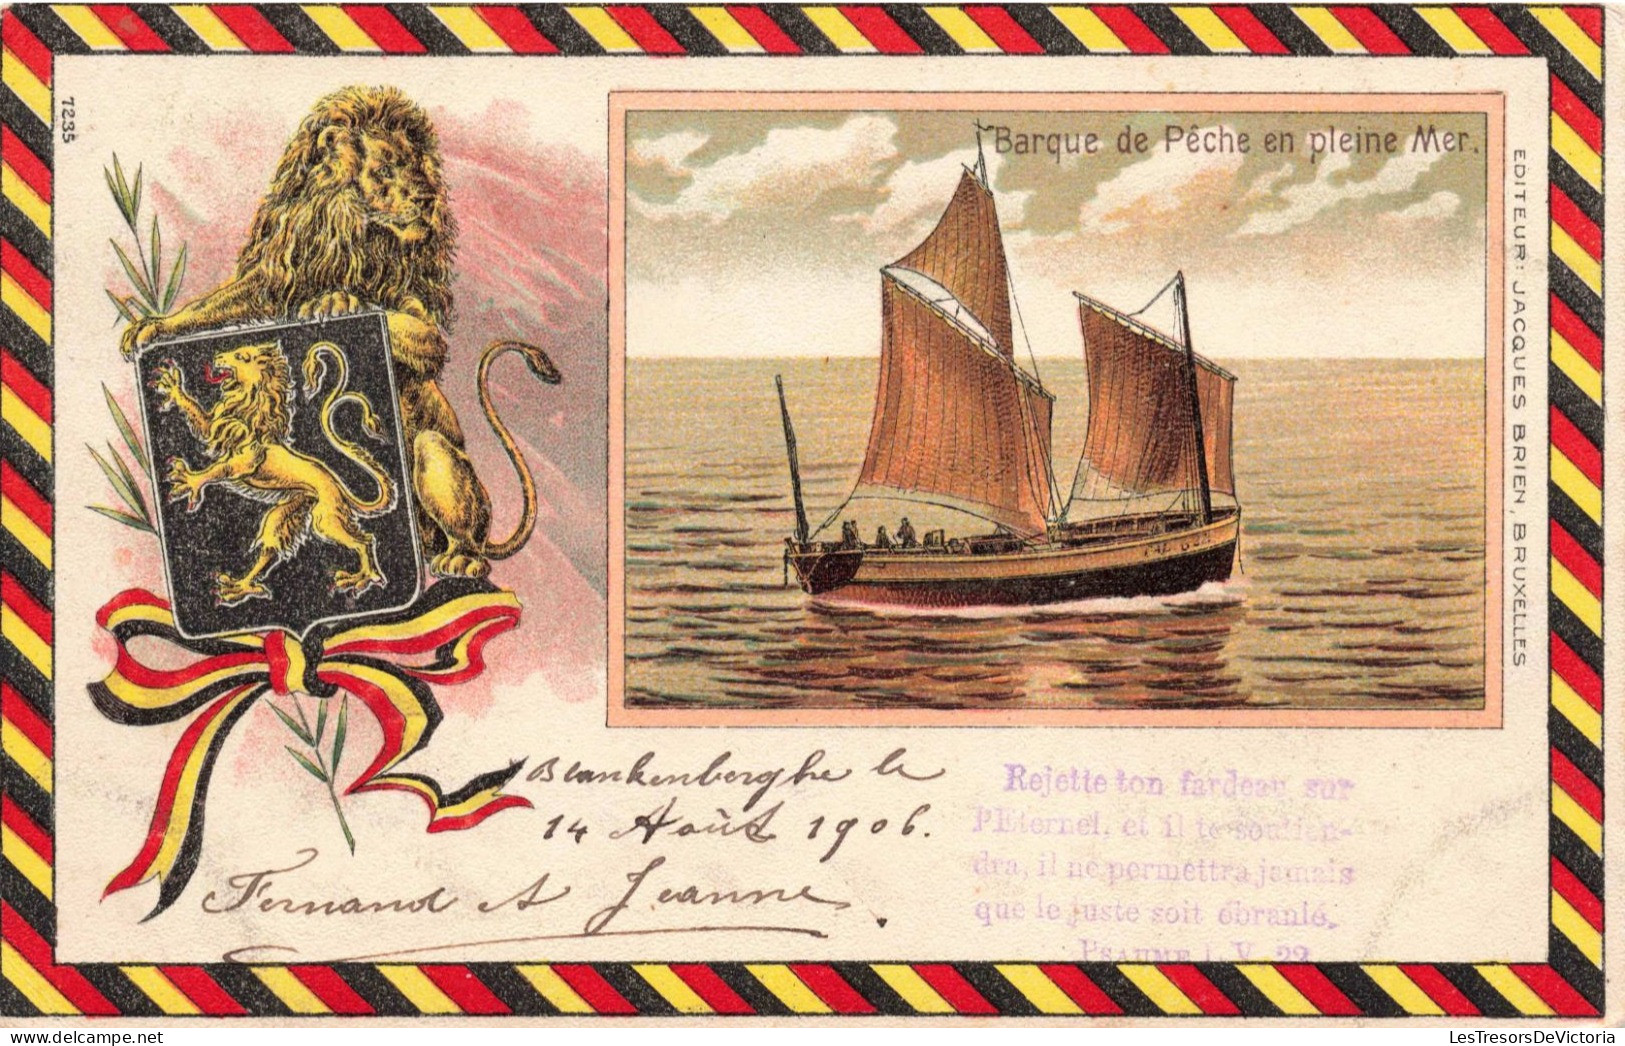 7235
Barque de Pêche en pleine Mer.
EDITEUR: JACQUES BRIEN, BRUXELLES
Blankenberghe le
14 Août 1906.
Fernand et Jeanne.
Rejette ton fardeau sur
l'Eternel, et il te soutien-
dra, il ne permettra jamais
que le juste soit ébranlé.
PSAUME L V. 22
LesTresorsDeVictoria